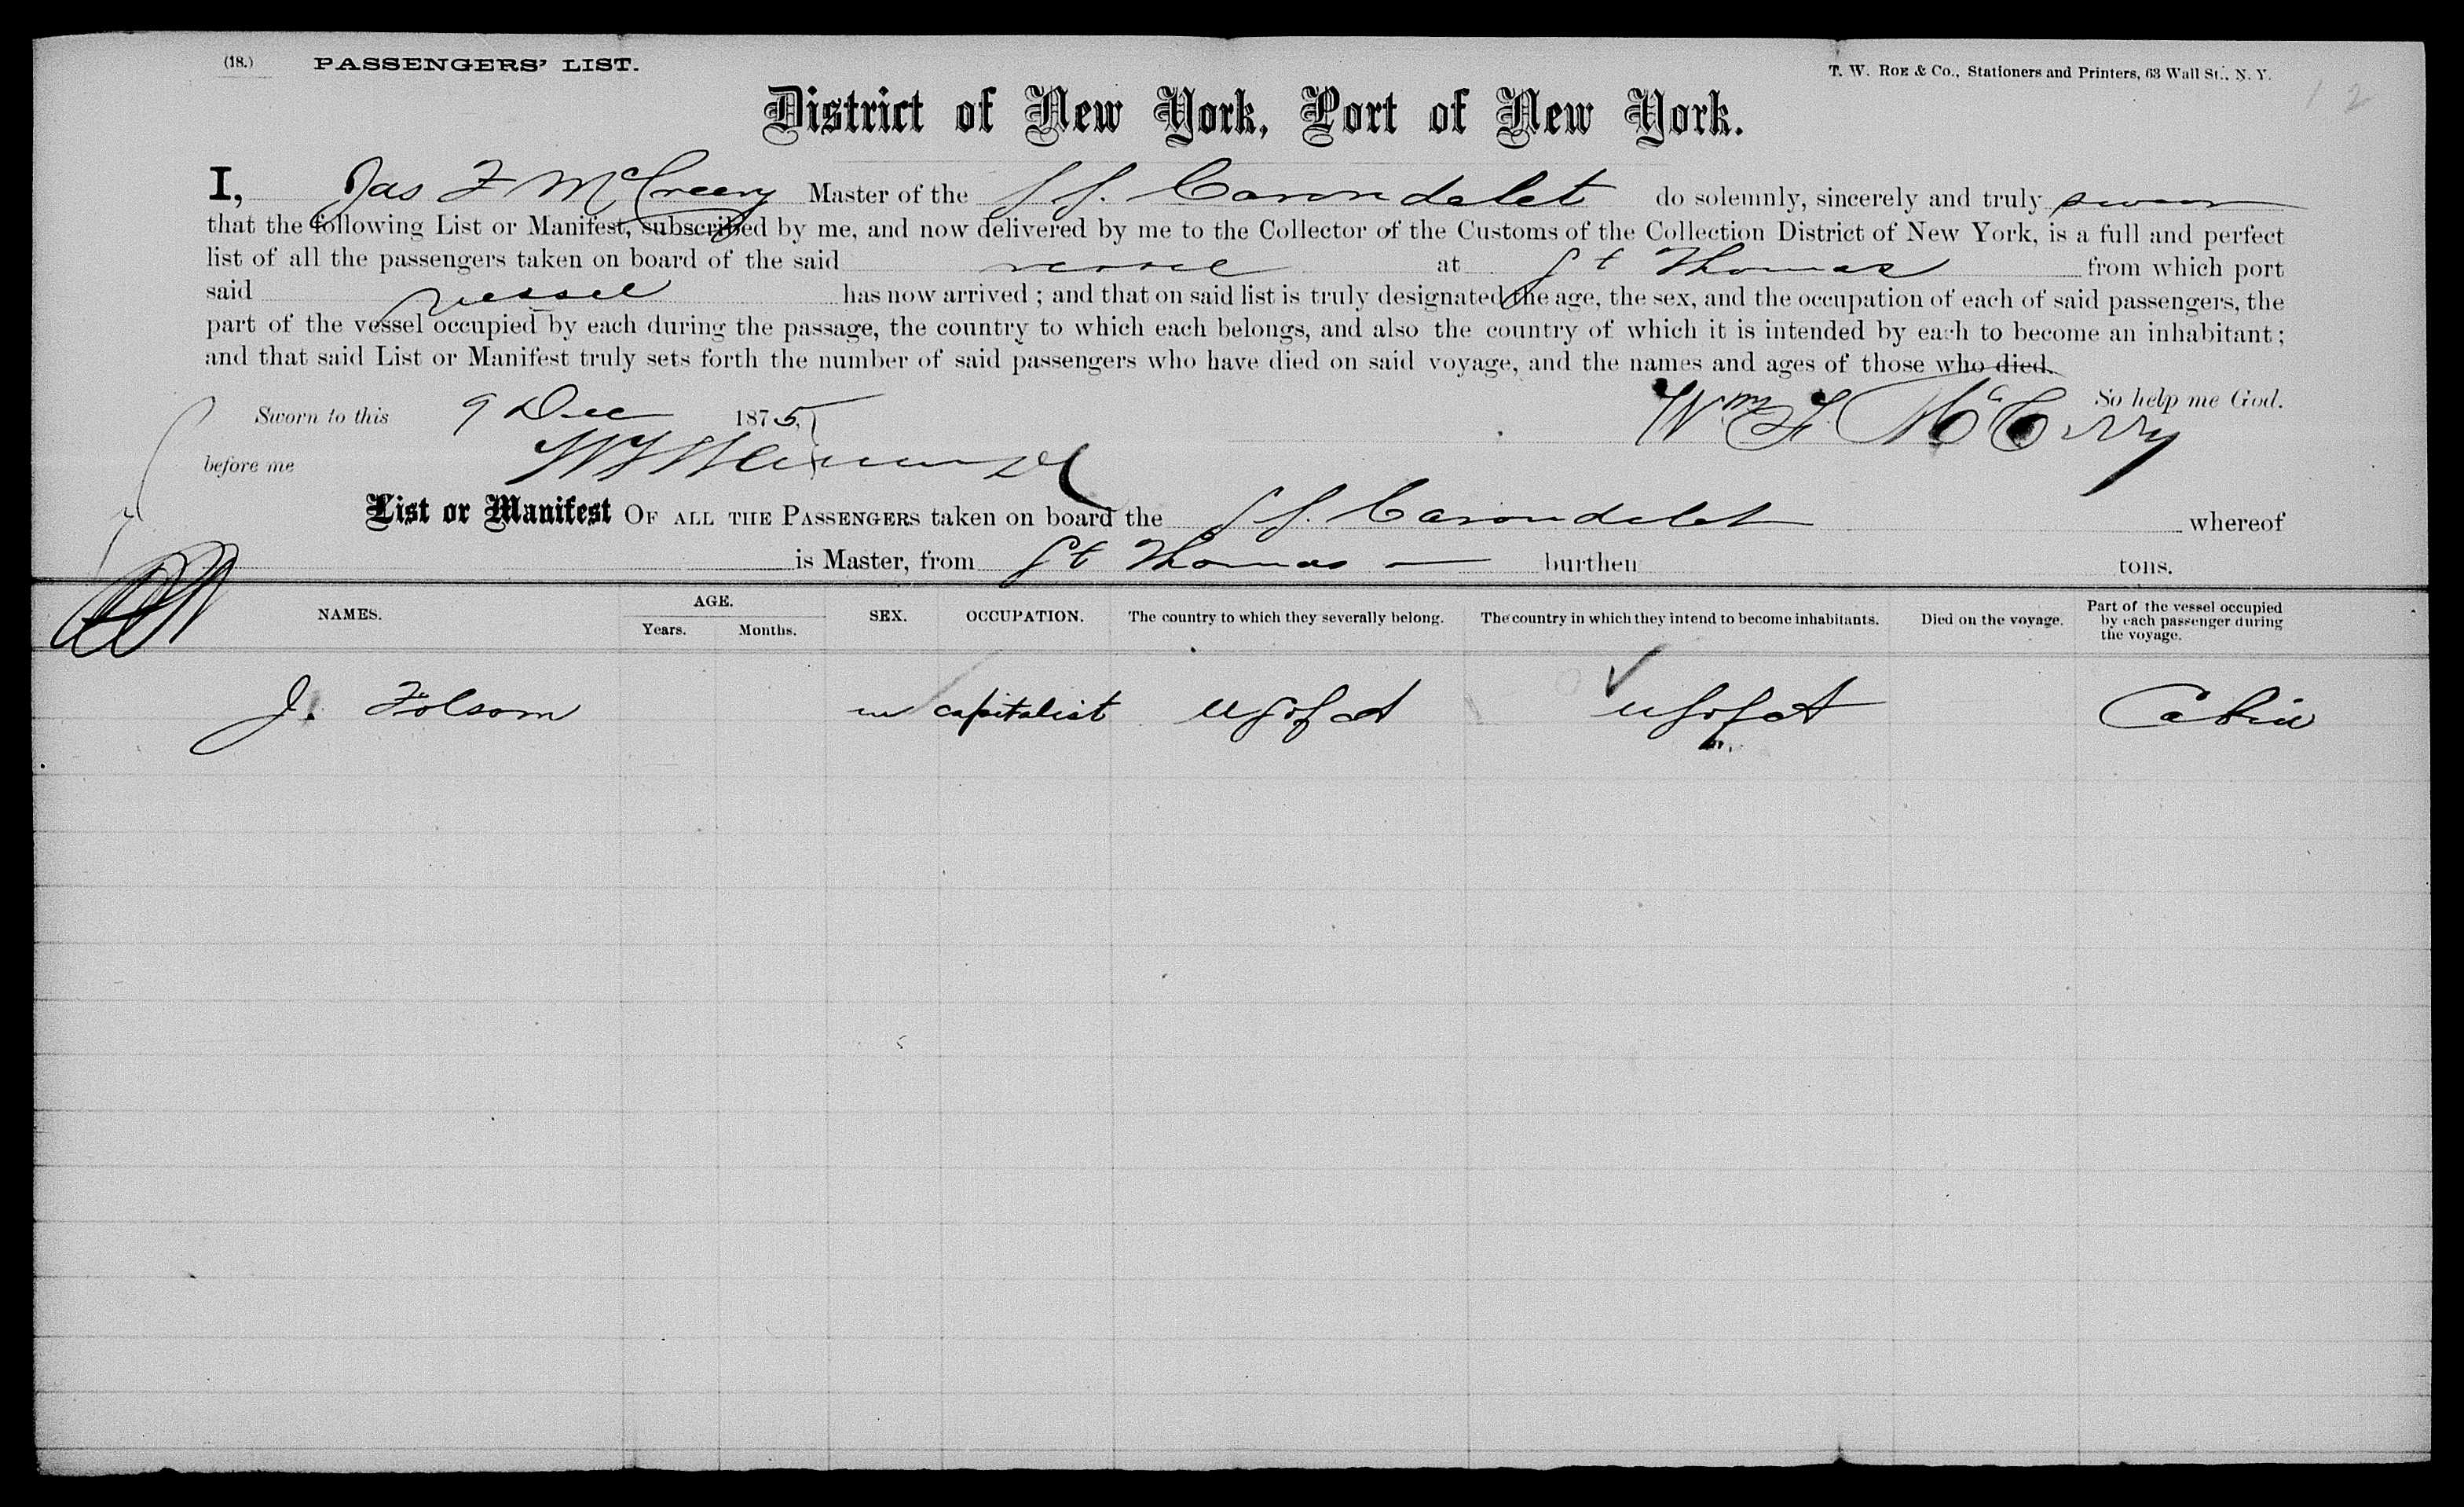 (18.) PASSENGERS' LIST.
T. W. ROE & Co., Stationers and Printers, 63 Wall St., N. Y.
12
District of New York, Port of New York.
I, Jas F McCreery Master of the SS. Carondelet do solemnly, sincerely and truly swear
that the following List or Manifest, subscribed by me, and now delivered by me to the Collector of the Customs of the Collection District of New York, is a full and perfect
list of all the passengers taken on board of the said vessel at St Thomas from which port
said vessel has now arrived; and that on said list is truly designated the age, the sex, and the occupation of each of said passengers, the
part of the vessel occupied by each during the passage, the country to which each belongs, and also the country of which it is intended by each to become an inhabitant;
and that said List or Manifest truly sets forth the number of said passengers who have died on said voyage, and the names and ages of those who died.
So help me God.
Sworn to this 9 Dec 1875,
Wm F.
before me
List or Manifest OF ALL THE PASSENGERS taken on board the SS. Carondelet whereof
is Master, from St Thomas — burthen tons.
NAMES. AGE. Years. Months. SEX. OCCUPATION. The country to which they severally belong. The country in which they intend to become inhabitants. Died on the voyage. Part of the vessel occupied by each passenger during the voyage.
J. Folsom m capitalist US of A US of A Cabin